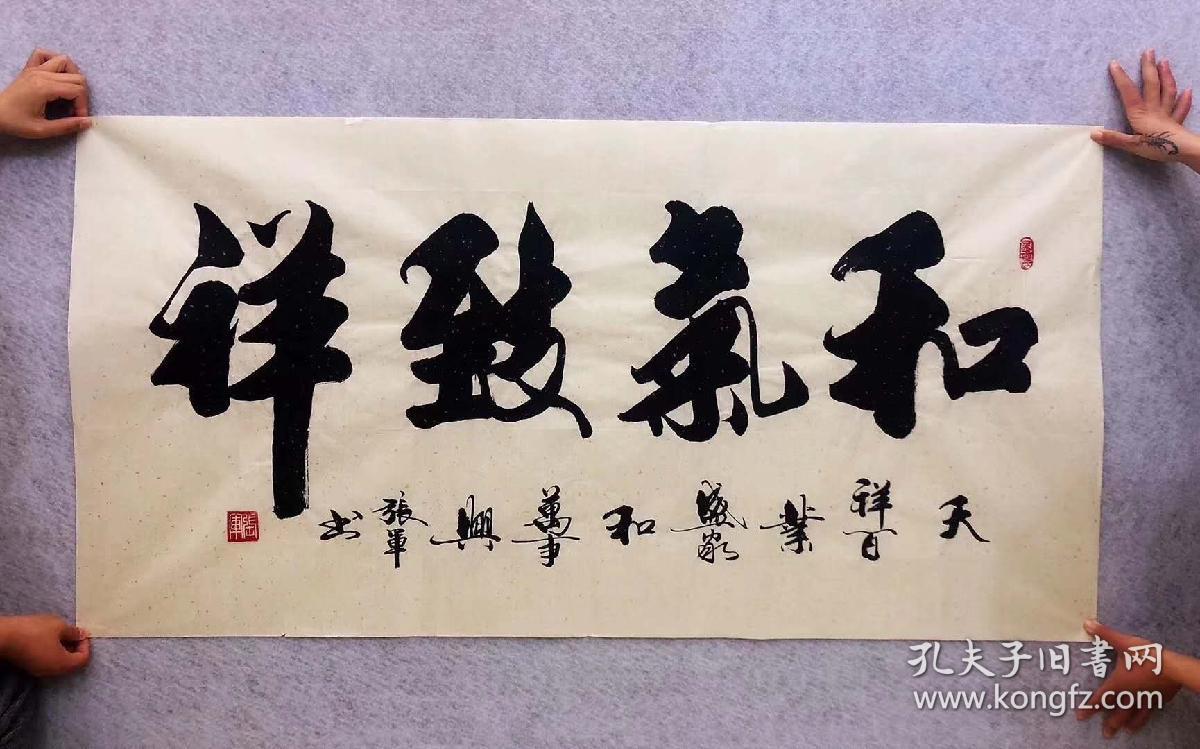 和氣致祥
天祥百業盛家和萬事興張軍書
張軍
孔夫子旧書网
www.kongfz.com